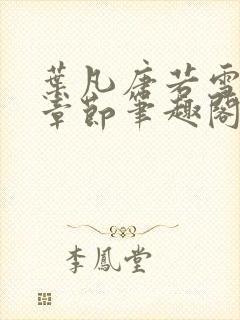 葉凡唐若雪
章節筆趣閣
李鳳堂